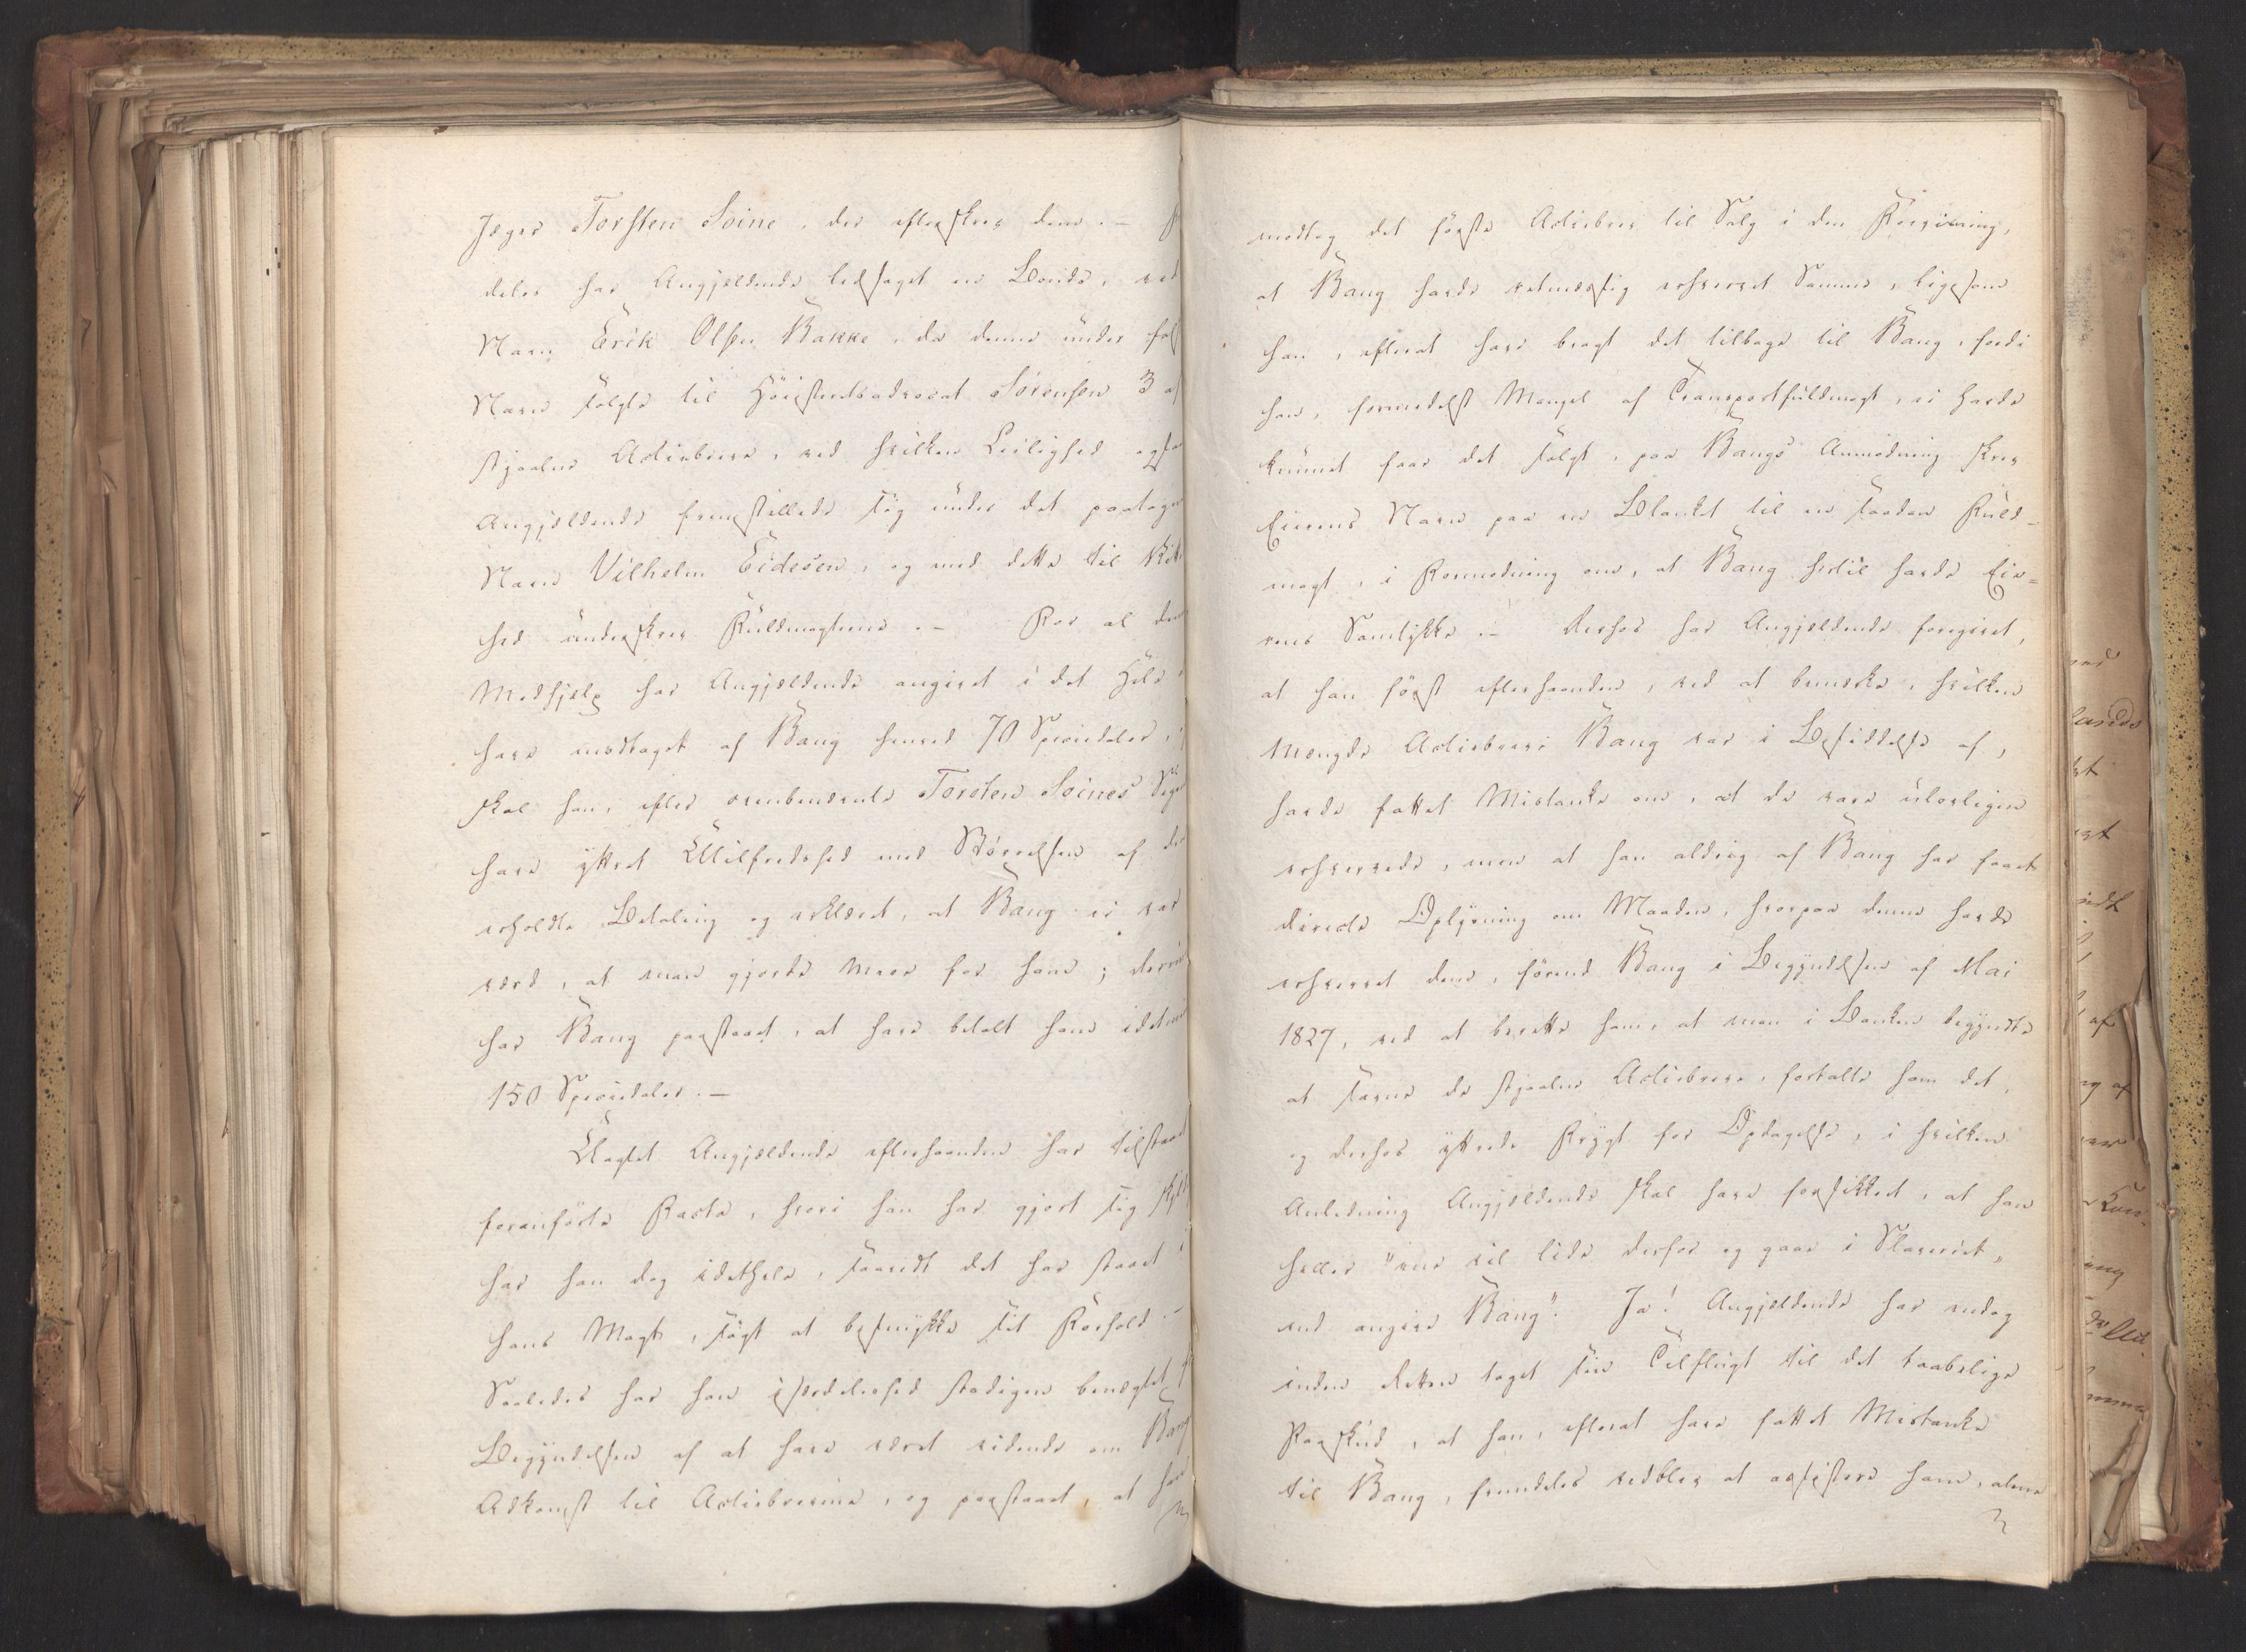 Jæger Torsten Soine, der efterskrev dem. –
deles har Angjældende ledsaget en Bonde, ved
Navn Erik Olsen Bakke, da denne under fals
Navn solgte til Høiesteretsadvocat Sørensen 3 af
stjaalne Actiebreve, ved hvilken Leilighed ogsaa
Angjældende fremstillede sig under det paatagne
Navn Vilhelm Eidesen, og med dette til Vit
hed underskrev Fuldmagterne. – For al den
Medhjelp har Angjældende angivet i det Hele
have modtaget af Bang henved 70 Speciedaler,
skal han, efter ovenbemeldte Torsten Soines Sig
have yttret Utilfredshed med Størrelsen af de
erholdte Betaling og erklæret, at Bang ei var
værd, at man gjorde mere for ham; derim
har Bang paastaaet, at have betalt ham idetmi
150 Speciedaler. –
Uagtet Angjældende efterhaanden har tilstaaet
foranførte Facta, hvori han har gjort sig skyld
har han dog idethele, saavidt det har staaet i
hans Magt, søgt at besmykke sit Forhold. –
Saaledes har han isærdeleshed stadigen benægtet f
Begyndelsen af at have været vidende om Bang
Adkomst til Actiebrevene, og paastaaet, at han
modtog det første Actiebrev til Salg i den Formening,
at Bang havde retmæssig erhvervet Samme, ligesom
han, efterat have bragt det tilbage til Bang, fordi
han, formedelst Mangel af Transportfuldmagt, ei havde
kunnet faae det solgt, paa Bangs Anmodning skrev
Eierens Navn paa en Blanket til en saadan Fuld-
magt, i Formodning om, at Bang hertil havde Eie-
rens Samtykke. – Derhos har Angjældende foregivet,
at han først efterhaanden, ved at bemærke, hvilken
Mængde Actiebreve Bang var i Besiddelse af,
havde fattet Mistanke om, at de vare ulovligen
erhvervede, men at han aldrig af Bang har faaet
directe Oplysning om Maaden, hvorpaa denne havde
erhvervet dem, førend Bang i Begyndelsen af Mai
1827, ved at berette ham, at man i Banken begyndte
at savne de stjaalne Actiebreve, fortalte ham det,
og derhos yttrede Frygt for Opdagelse, i hvilken
Anledning Angjældende skal have forsikkret, at han
heller "ene vil lide derfor og gaae i Slaveriet,
end angive Bang". Ja! Angjældende har endog
inden Retten taget sin Tilflugt til det taabelige
Paaskud, at han, efterat have fattet Mistanke
til Bang, fremdeles vedblev at assistere ham, alene